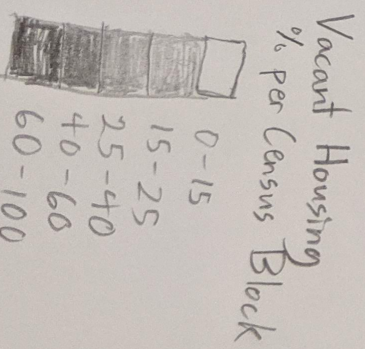 Vacant Housing
% per Census Block
0-15
15-25
25-40
40-60
60-100